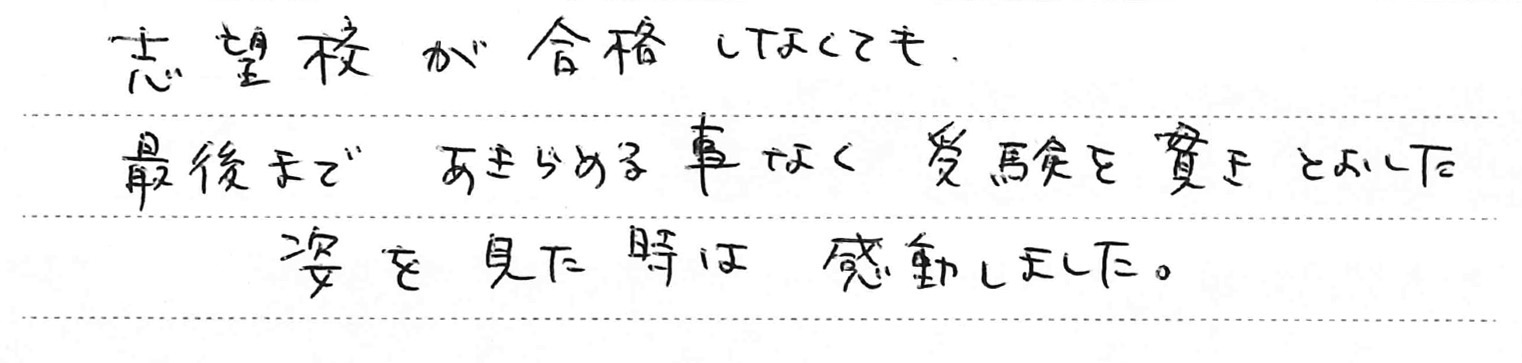 志望校が合格しなくても、
最後まであきらめる事なく受験を貫きとおした
姿を見た時は感動しました。